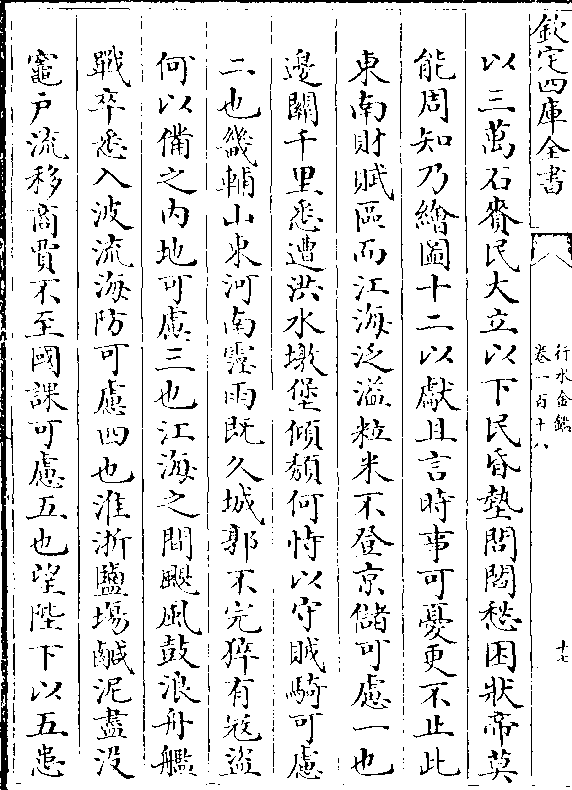 欽定四庫全書
行水金鑑
卷一百十八
十七
以三萬石賚民大立以下民昏墊閭閻愁困狀帝莫
能周知乃繪圖十二以獻且言時事可憂更不止此
東南財賦區而江海泛溢粒米不登京儲可慮一也
邊關千里悉遭洪水墩堡傾頹何恃以守賊騎可慮
二也畿輔山東河南霪雨既久城郭不完猝有㓂盜
何以備之内地可慮三也江海之間颶風鼓浪舟艦
戰卒悉入波流海防可慮四也淮浙鹽塲鹹泥盡没
竈戸流移商賈不至國課可慮五也望陛下以五患